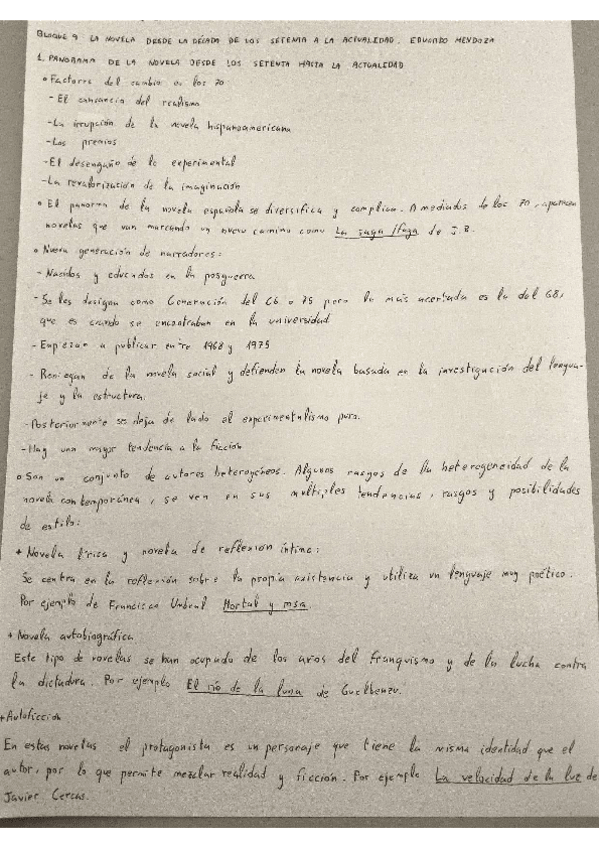 BLOQUE 9 LA NOVELA DESDE LA DÉCADA DE LOS SETENTA A LA ACTUALIDAD. EDUARDO MENDOZA
1. PANORAMA DE LA NOVELA DESDE LOS SETENTA HASTA LA ACTUALIDAD
• Factores del cambio en los 70
- El cansancio del realismo
- La irrupción de la novela hispanoamericana
- Los premios
- El desengaño de lo experimental
- La revalorización de la imaginación
• El panorama de la novela española se diversifica y complica. A mediados de los 70, aparecen
novelas que van marcando un nuevo camino como La saga/fuga de J.B.
• Nueva generación de narradores:
- Nacidos y educados en la posguerra
- Se les designa como Generación del 66 o 75 pero la más acertada es la del 68,
que es cuando se encontraban en la universidad
- Empiezan a publicar entre 1968 y 1975
- Reniegan de la novela social y defienden la novela basada en la investigación del lengua-
je y la estructura.
- Posteriormente se deja de lado el experimentalismo puro.
- Hay una mayor tendencia a la ficción
• Son un conjunto de autores heterogéneos. Algunos rasgos de la heterogeneidad de la
novela contemporánea, se ven en sus múltiples tendencias, rasgos y posibilidades
de estilo:
+ Novela lírica y novela de reflexión íntima:
Se centra en la reflexión sobre la propia existencia y utiliza un lenguaje muy poético.
Por ejemplo de Francisco Umbral Mortal y rosa.
+ Novela autobiográfica
Este tipo de novelas se han ocupado de los años del franquismo y de la lucha contra
la dictadura. Por ejemplo El río de la luna de Guelbenzu.
+ Autoficción
En estas novelas el protagonista es un personaje que tiene la misma identidad que el
autor, por lo que permite mezclar realidad y ficción. Por ejemplo La velocidad de la luz de
Javier Cercas.